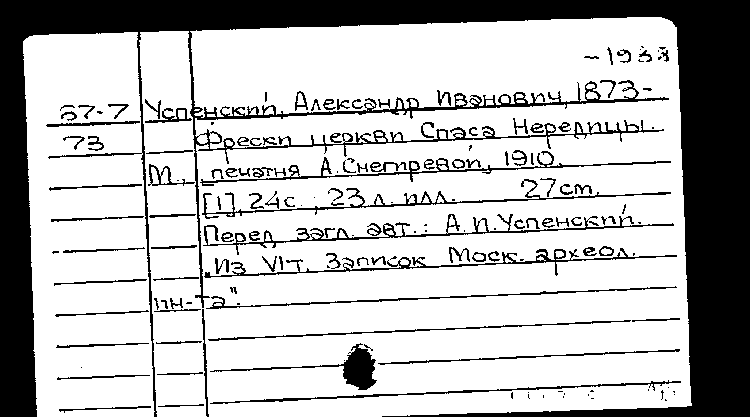 ~1938
57-7 Успенский, Александр Иванович, 1873-
73 Фрески церкви Спаса Нередицы.
М., печатня А. Снегиревой, 1910.
[1], 24 с.; 23 л. илл. 27 cm.
Перед загл. авт.: А. И. Успенский.
„Из VI т. Записок Моск. археол.
ин-та".